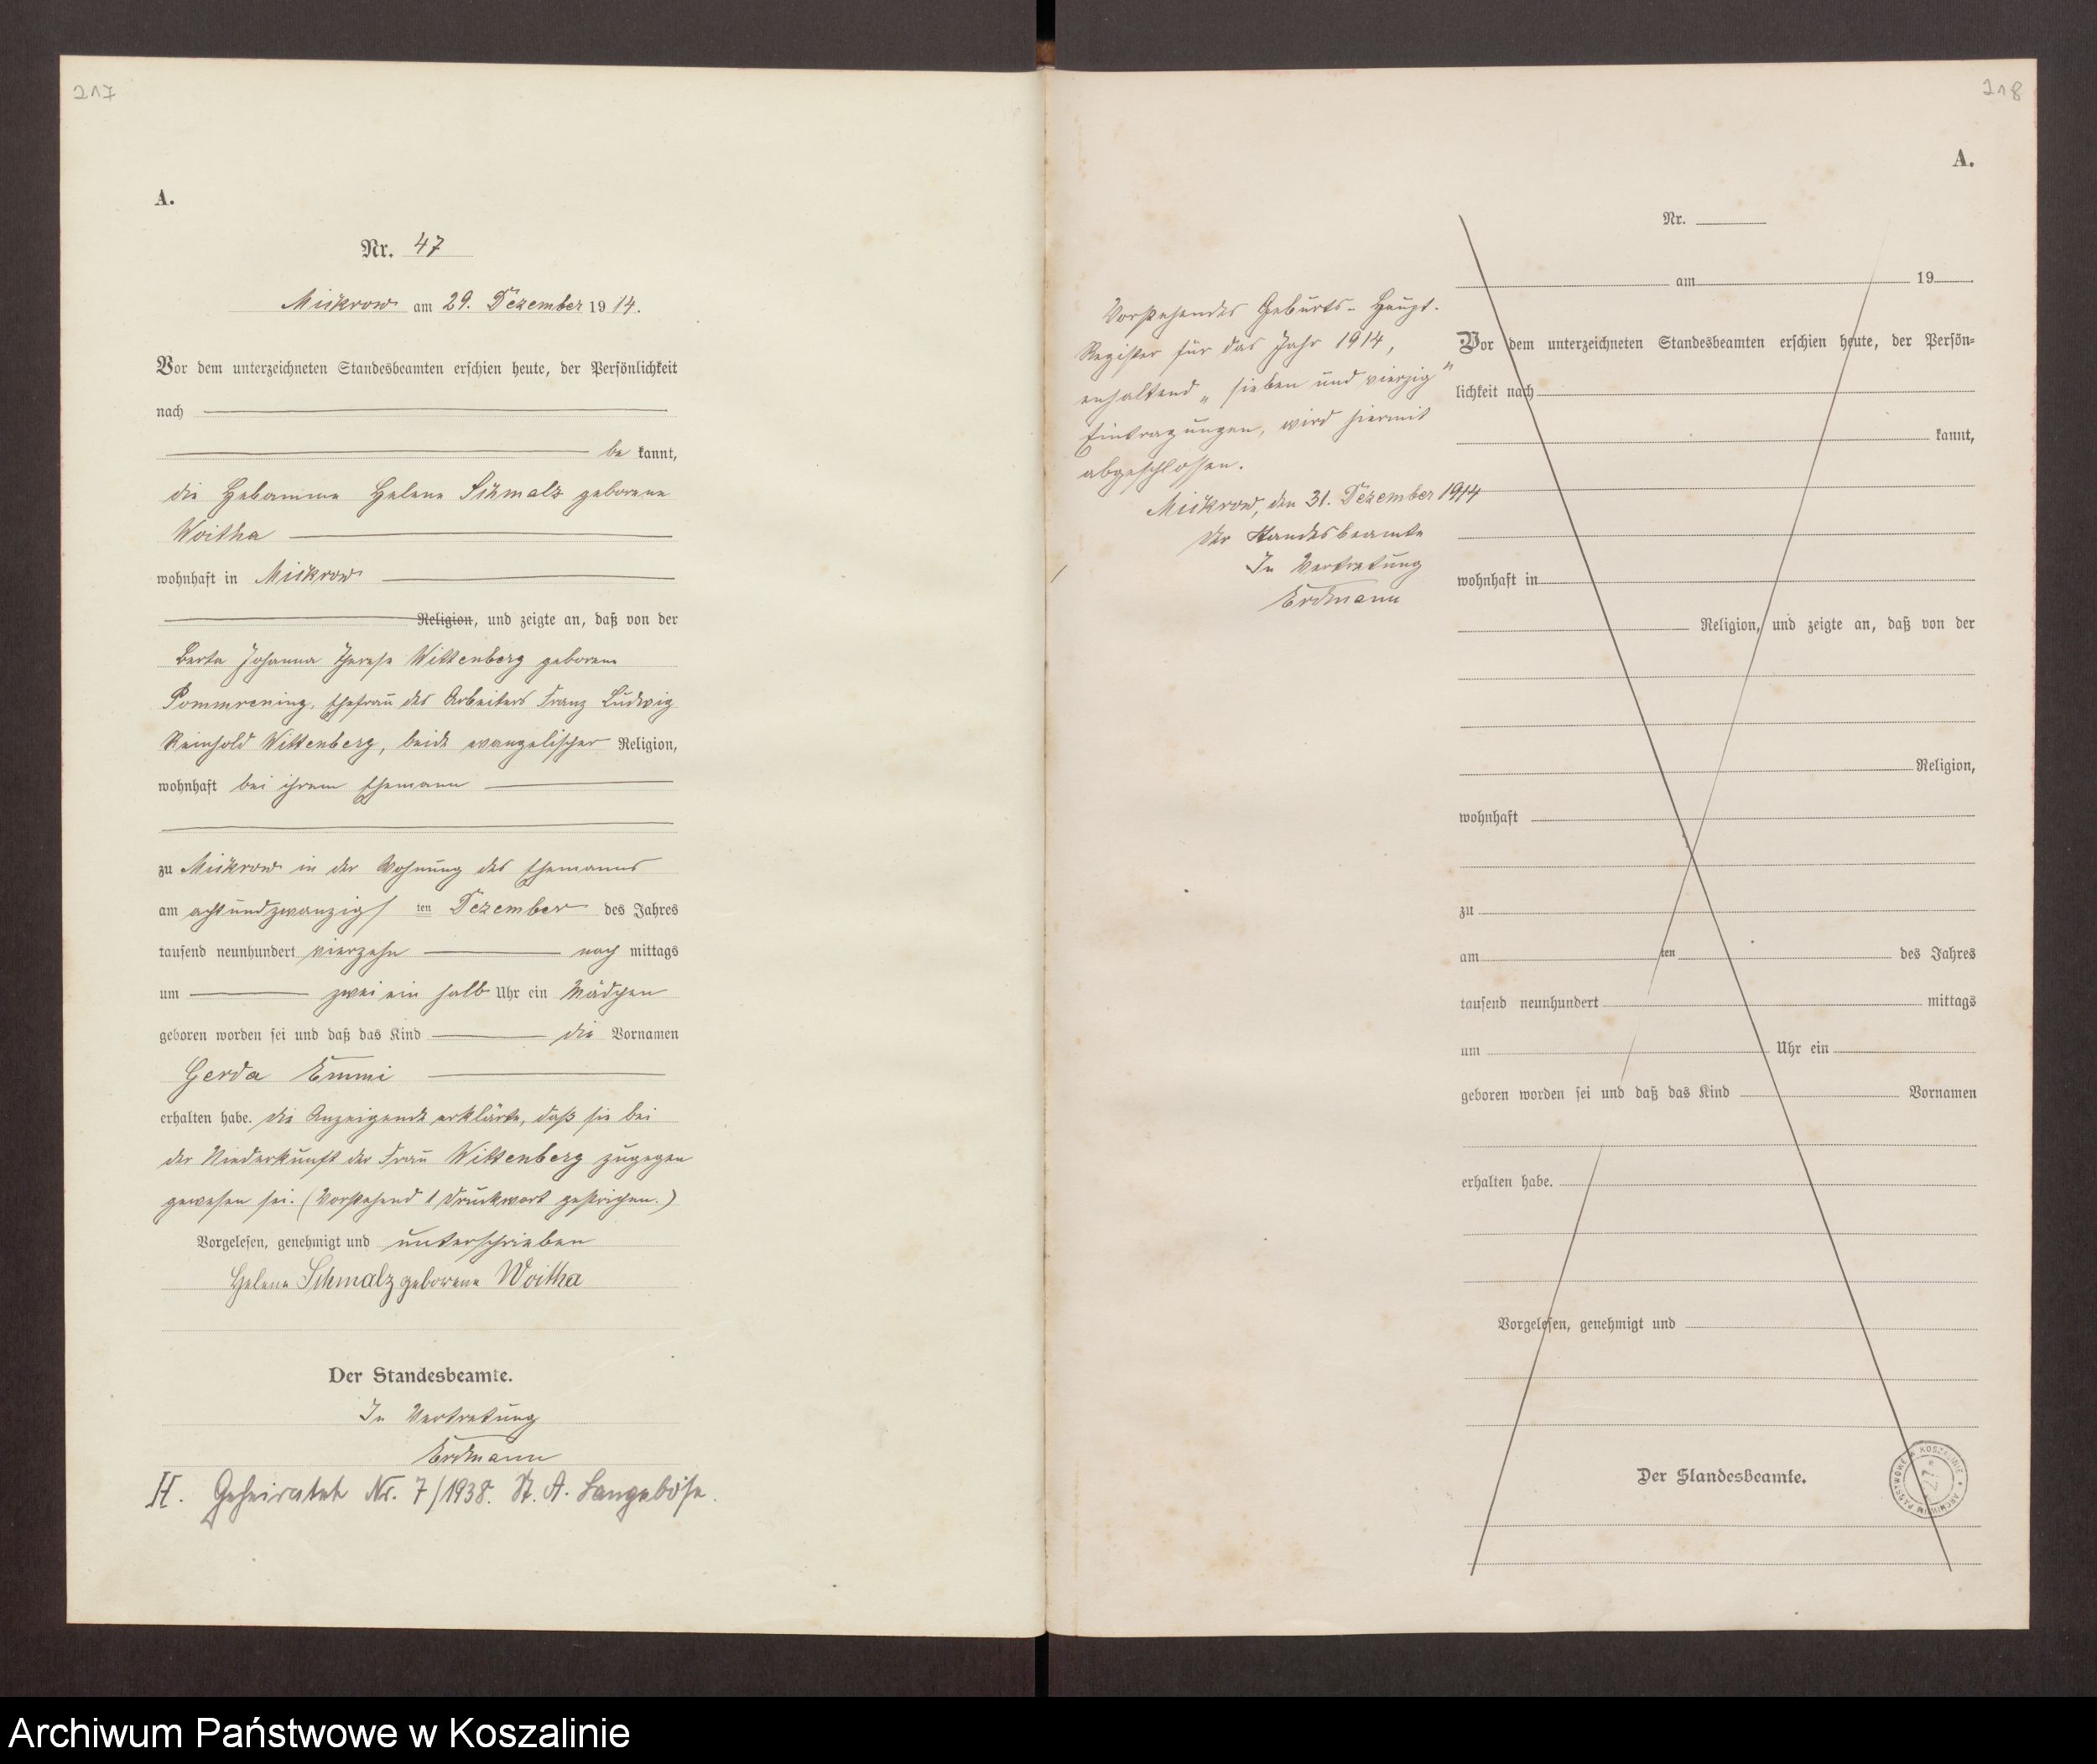 217
A.
Nr. 47
Mickrow am 29. Dezember 1914.
Vor dem unterzeichneten Standesbeamten erschien heute, der Persönlichkeit
nach
be kannt,
die Hebamme Helene Schmalz geborene
Woitha
wohnhaft in Mickrow
Religion, und zeigte an, daß von der
Berta Johanna Therese Wittenberg geborene
Pommrening, Ehefrau des Arbeiters Franz Ludwig
Reinhold Wittenberg, beide evangelischer Religion,
wohnhaft bei ihrem Ehemann
zu Mickrow in der Wohnung des Ehemanns
am achtundzwanzigsten Dezember des Jahres
tausend neunhundert vierzehn nach mittags
um zwei ein halb Uhr ein Mädchen
geboren worden sei und daß das Kind die Vornamen
Gerda Emmi
erhalten habe. Die Anzeigende erklärte, daß sie bei
der Niederkunft der Frau Wittenberg zugegen
gewesen sei. (Vorstehend 1 Druckwort gestrichen.)
Vorgelesen, genehmigt und unterschrieben
Helene Schmalz geborene Woitha
Der Standesbeamte.
In Vertretung
Erdmann
H. Geheiratet Nr. 7/1938. St. A. Langeböse.
218
A.
Vorstehendes Geburts-Haupt-
Register für das Jahr 1914,
enhaltend „sieben und vierzig"
Eintragungen, wird hiermit
abgeschlossen.
Mickrow, den 31. Dezember 1914
Der Standesbeamte
In Vertretung
Erdmann
Nr.
am 19
Vor dem unterzeichneten Standesbeamten erschien heute, der Persön-
lichkeit nach
kannt,
wohnhaft in
Religion, und zeigte an, daß von der
Religion,
wohnhaft
zu
am ten des Jahres
tausend neunhundert mittags
um Uhr ein
geboren worden sei und daß das Kind Vornamen
erhalten habe.
Vorgelesen, genehmigt und
Der Standesbeamte.
ARCHIWUM PAŃSTWOWE W KOSZALINIE
Archiwum Państwowe w Koszalinie